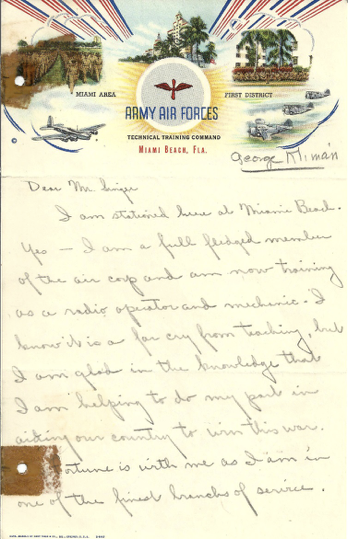 MIAMI AREA
FIRST DISTRICT
ARMY AIR FORCES
TECHNICAL TRAINING COMMAND
MIAMI BEACH, FLA.
George
Dear Mr.
I am stationed here at Miami Beach.
Yes — I am a full fledged member
of the air corp and am now training
as a radio operator and mechanic. I
know it is a far cry from teaching, but
I am glad in the knowledge that
I am helping to do my part in
aiding our country to win this war.
ortune is with me as I am in
one of the finest branchs of service.